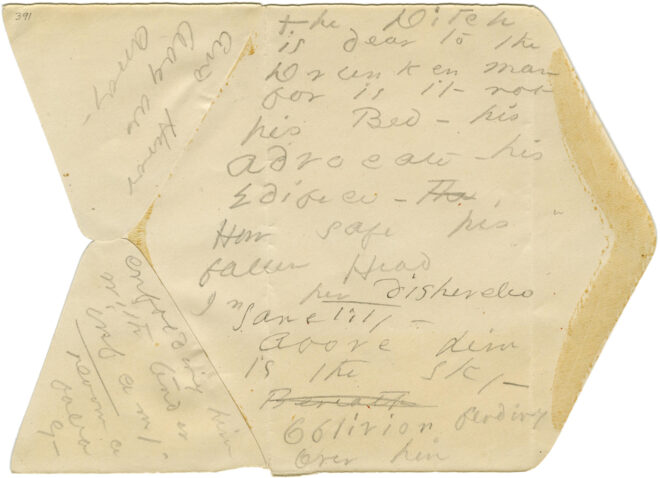 391
The Ditch
is dear to the
Drunken man
for is it not
his Bed - his
Advocate - his
Edifice - The
How safe his
fallen Head
In her disheveled
Sanctity -
Above him
is the sky -
Beneath
Oblivion bending
over him
And Honor
leagues
away -
enfolding him
with tender
infamy
Doom a
fallacy -